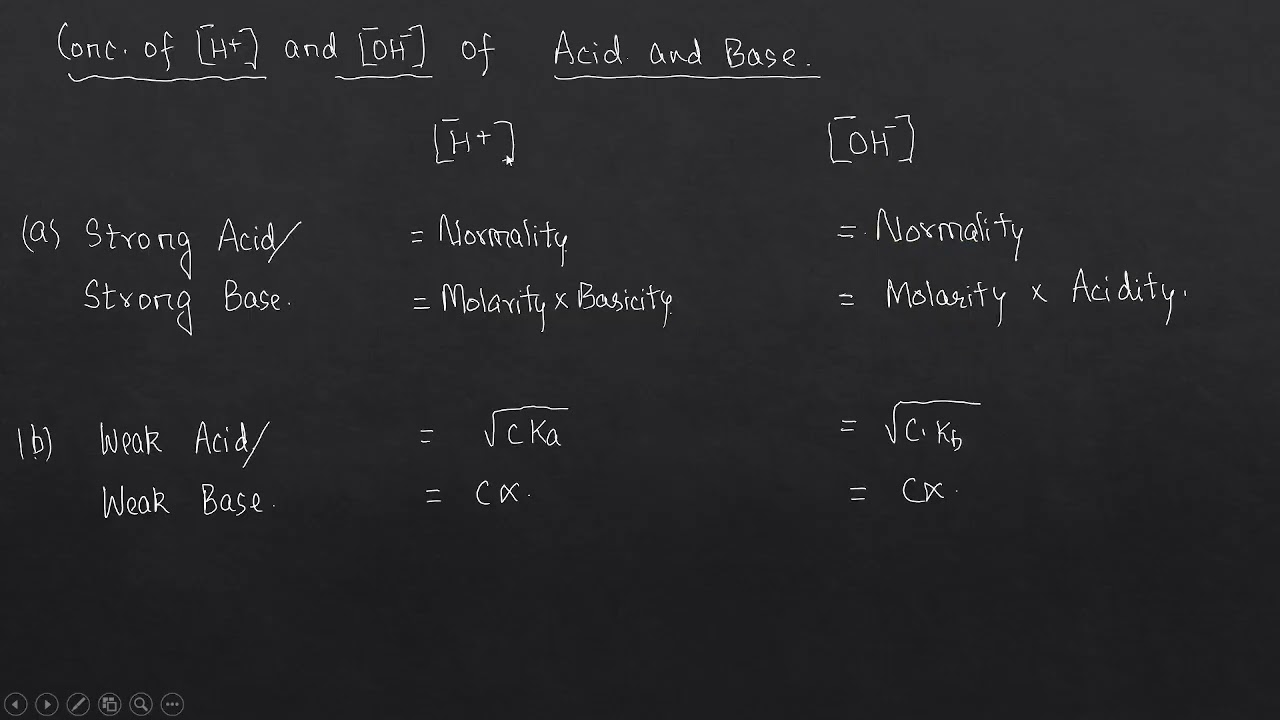 Conc. of [H+] and [OH-] of Acid and Base.
[H+] [OH-]
(a) Strong Acid/ = Normality = Normality
Strong Base. = Molarity x Basicity = Molarity x Acidity.
(b) Weak Acid/ = √CKa = √C.Kb
Weak Base. = Cα. = Cα.